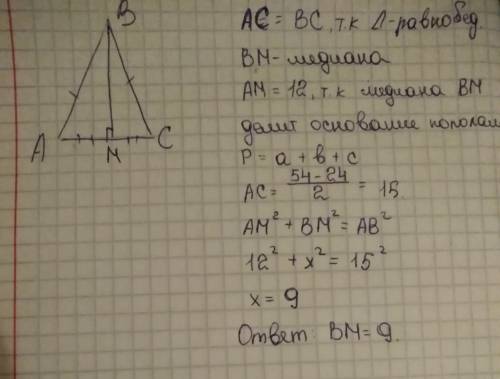 B
A
M
C
AC = BC, т.к Δ-равнобед.
BM-медиана
AM = 12, т.к медиана BM
делит основание пополам
P = a + b + c
AC = 54-24 / 2 = 15
AM² + BM² = AB²
12² + x² = 15²
x = 9
Ответ: BM = 9.